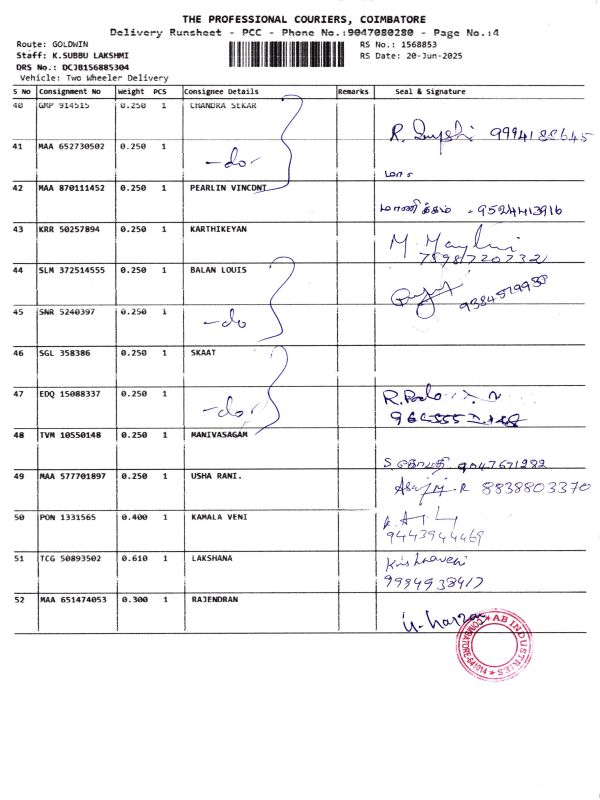 THE PROFESSIONAL COURIERS, COIMBATORE
Delivery Runsheet - PCC - Phone No.:9047080280 - Page No.:4
Route: GOLDWIN RS No.: 1568853
Staff: K.SUBBU LAKSHMI RS Date: 20-Jun-2025
DRS No.: DCJB156885304
Vehicle: Two Wheeler Delivery
S No Consignment No Weight PCS Consignee Details Remarks Seal & Signature
40 GMP 914515 0.250 1 CHANDRA SEKAR
R. 9994188645
41 MAA 652730502 0.250 1
-do-
42 MAA 870111452 0.250 1 PEARLIN VINCONT
மாணிக்கம் - 9524413916
43 KRR 50257894 0.250 1 KARTHIKEYAN
M.
7598720732
44 SLM 372514555 0.250 1 BALAN LOUIS
45 SNR 5240397 0.250 1
-do
46 SGL 358386 0.250 1 SKAAT
47 EDQ 15088337 0.250 1
-do-
48 TVM 10550148 0.250 1 MANIVASAGAM
9047671282
49 MAA 577701897 0.250 1 USHA RANI.
8838803370
50 PON 1331565 0.400 1 KAMALA VENI
9443944469
51 TCG 50893502 0.610 1 LAKSHANA
Krishnaveni
9994938417
52 MAA 651474053 0.300 1 RAJENDRAN
AB INDUSTRIES
COIMBATORE-641014